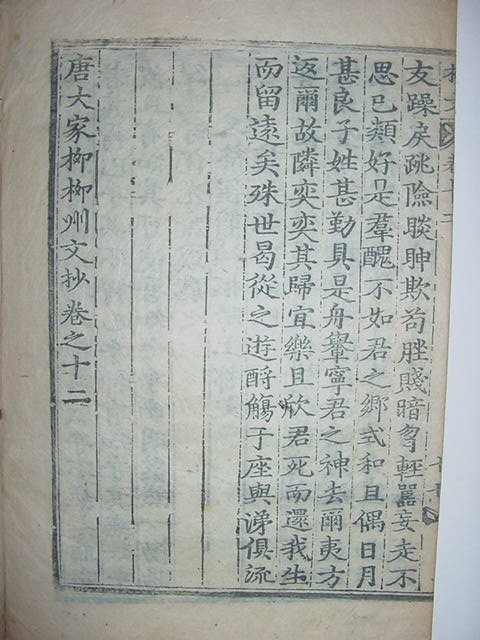 友躁戾跳險睒眒欺苟脞賤暗曶輕嚚妄走不
思已類好是羣醜不如君之鄉式和且偶日月
甚良子姓甚勤具是舟轝寧君之神去爾夷方
返爾故隣奕奕其歸宜樂且欣君死而還我生
而留遠矣殊世曷從之遊酹觴子座與涕俱流
唐大家柳柳州文抄卷之十二